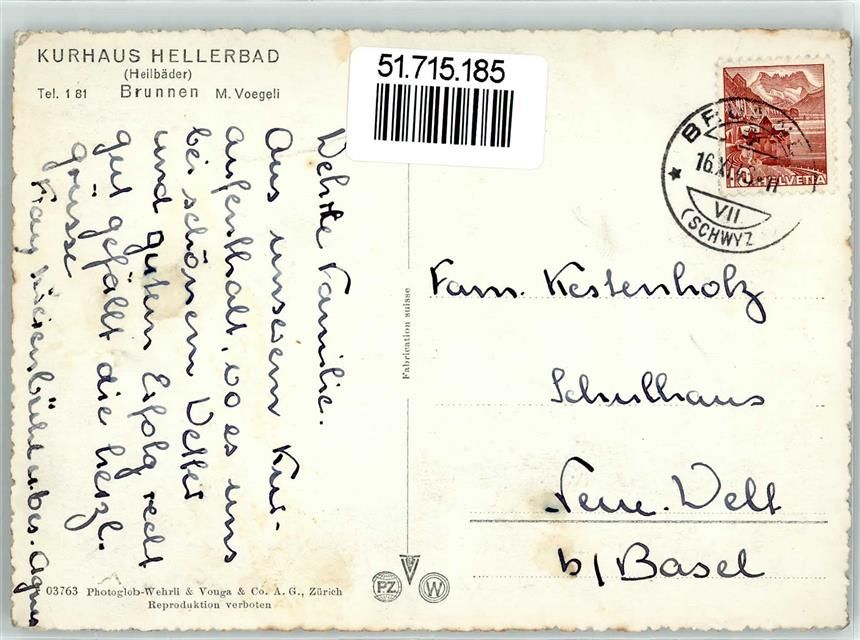 KURHAUS HELLERBAD
(Heilbäder)
Tel. 1 81 Brunnen M. Voegeli
51.715.185
16.XI
HELVETIA
VII
(SCHWYZ
Werte Familie.
Aus unserem Kur-
aufenthalt, wo es uns
bei schönem Wetter
und gutem Erfolg recht
gut gefällt die herzl.
grüsse
Agnes
Fabrication suisse
Fam. Kestenholz
Schulhaus
Neue. Welt
b/Basel
03763 Photoglob-Wehrli & Vouga & Co. A. G., Zürich
Reproduktion verboten
PZ W